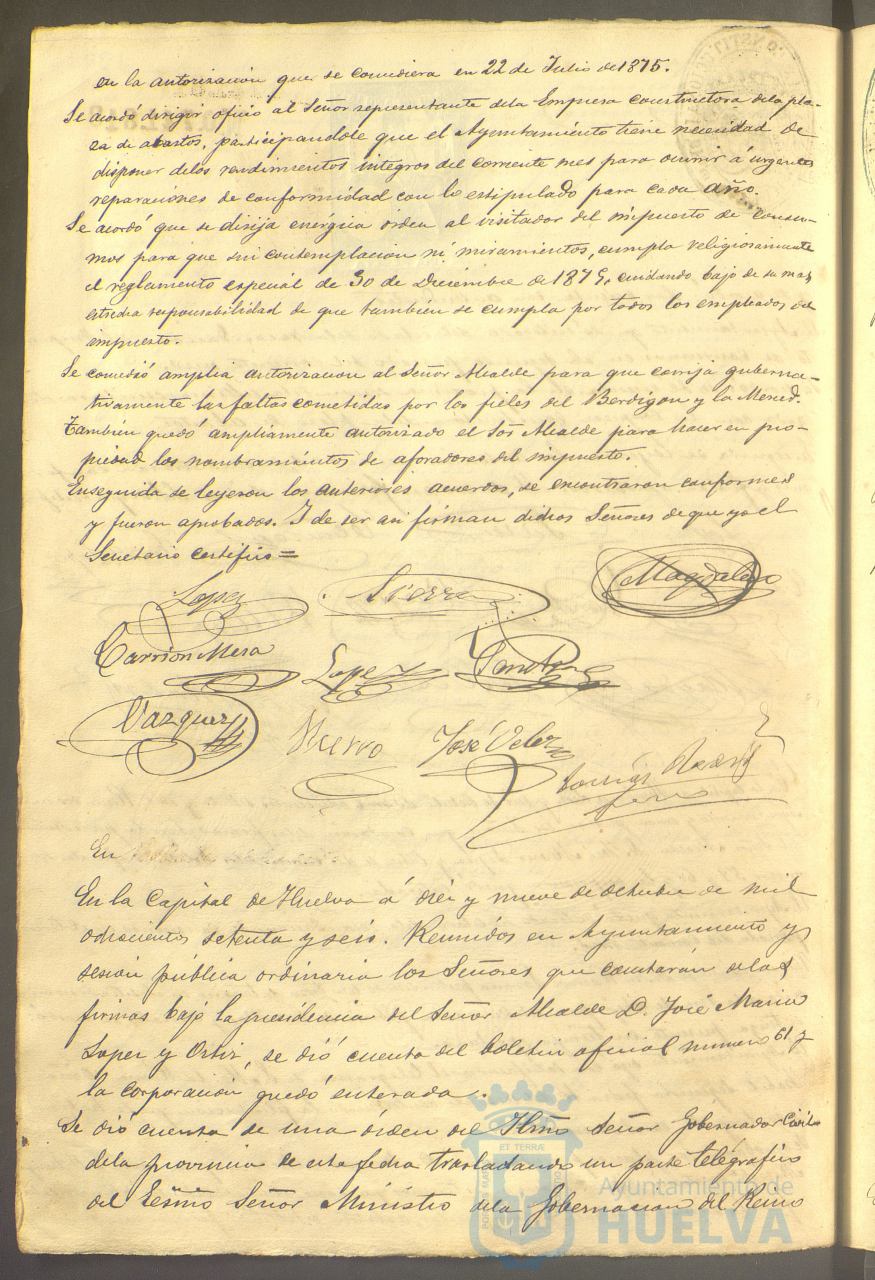 en la autorización que se concediera en 22 de Julio de 1875.
Se acordó dirigir oficio al Señor representante dela Empresa constructora dela pla-
za de abastos, participandole que el Ayuntamiento tiene necesidad de
disponer delos rendimientos integros del corriente mes para ocurrir á urgentes
reparaciones de conformidad con lo estipulado para cada año.
Se acordó que se dirija enérgica órden al visitador del impuesto de consu-
mos para que sin contemplacion ni miramientos, cumpla religiosamente
el reglamento especial de 30 de Diciembre de 187, cuidando bajo de su mas
estrecha responsabilidad de que tambien se cumpla por todos los empleados del
impuesto.
Se concedió amplia autorizacion al Señor Alcalde para que corrija guberna-
tivamente las faltas cometidas por los fieles del Berdigon y la Merced.
Tambien quedó ampliamente autorizado el Sor Alcalde para hacer en pro-
piedad los nombramientos de aforadores del impuesto.
Enseguida se leyeron los anteriores acuerdos, se encontraron conformes
y fueron aprobados. I de ser asi firman dichos Señores de que yo el
Secretario certifico =
Lopez Sierra Magdaleno
Carrion Mesa Lopez
Vazquez Hierro José Velez
En
En la Capital de Huelva á diez y nueve de octubre de mil
ochocientos setenta y seis. Reunidos en Ayuntamiento y
sesion pública ordinaria los Señores que constarán delas
firmas bajo la presidencia del Señor Alcalde D. José Maria
Lopez y Ortiz, se dió cuenta del boletin oficial numero 61 y
la corporacion quedó enterada.
Se dió cuenta de una órden del Iltmo Señor Gobernador Civil
dela provincia de esta fecha trasladando un parte telégrafico
del Escmo Señor Ministro dela Gobernacion del Reino
ET TERRÆ
Ayuntamiento de
HUELVA